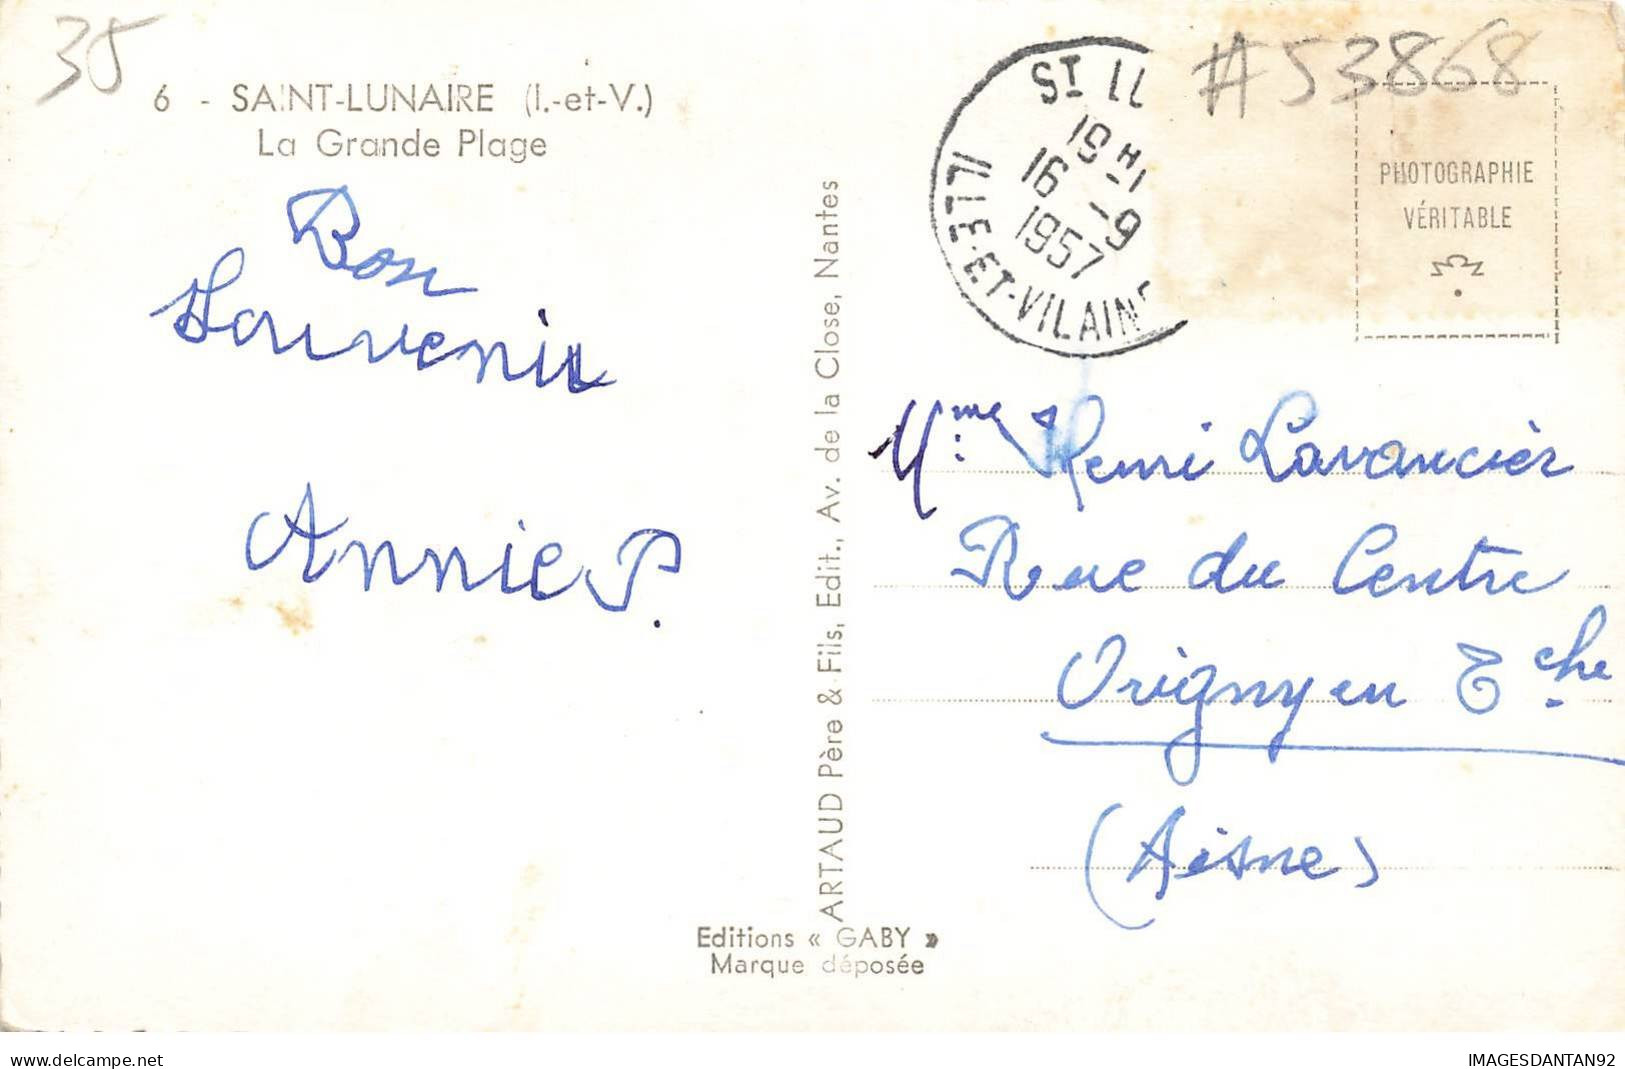 35
6 - SAINT-LUNAIRE (I.-et-V.)
La Grande Plage
Bon
Souvenir
Annie P.
ARTAUD Père & Fils, Edit., Av. de la Close, Nantes
Editions « GABY »
Marque déposée
ST LU
19H
16 -9
1957
ILLE-ET-VILAINE
#53868
PHOTOGRAPHIE
VÉRITABLE
Mme Henri Lavancier
Rue du Centre
Origny en Tche
(Aisne)
delcampe.net
IMAGESDANTAN92